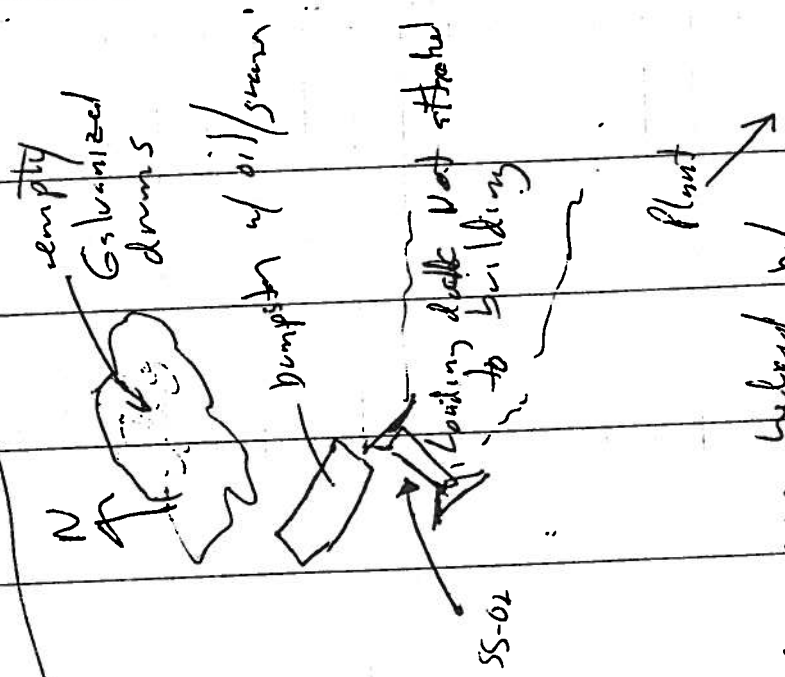 empty
Galvanized
drums
N
Dumpster w/ oil/
Loading dock Not attached
to building
SS-02
Plant
behind